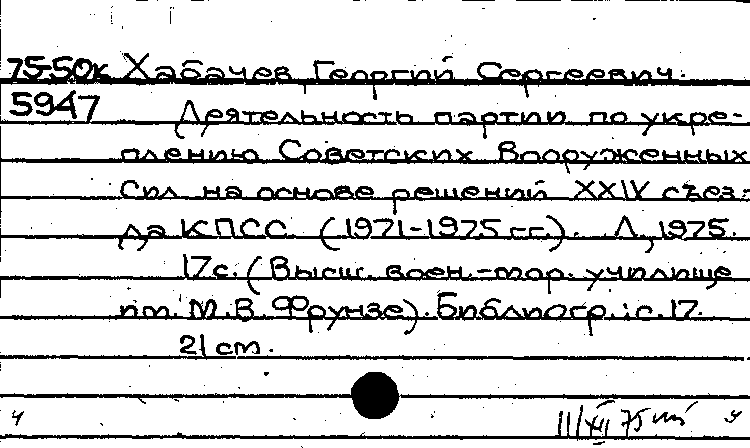 75-50к Хабачев, Георгий Сергеевич.
5947 Деятельность партии по укре-
плению Советских Вооруженных
Сил на основе решений XXIV съез-
да КПСС. (1971-1975 гг.). Л., 1975.
17с. (Высш. воен.-мор. училище
им. М.В. Фрунзе). Библиогр.: с. 17.
21 см.
ч